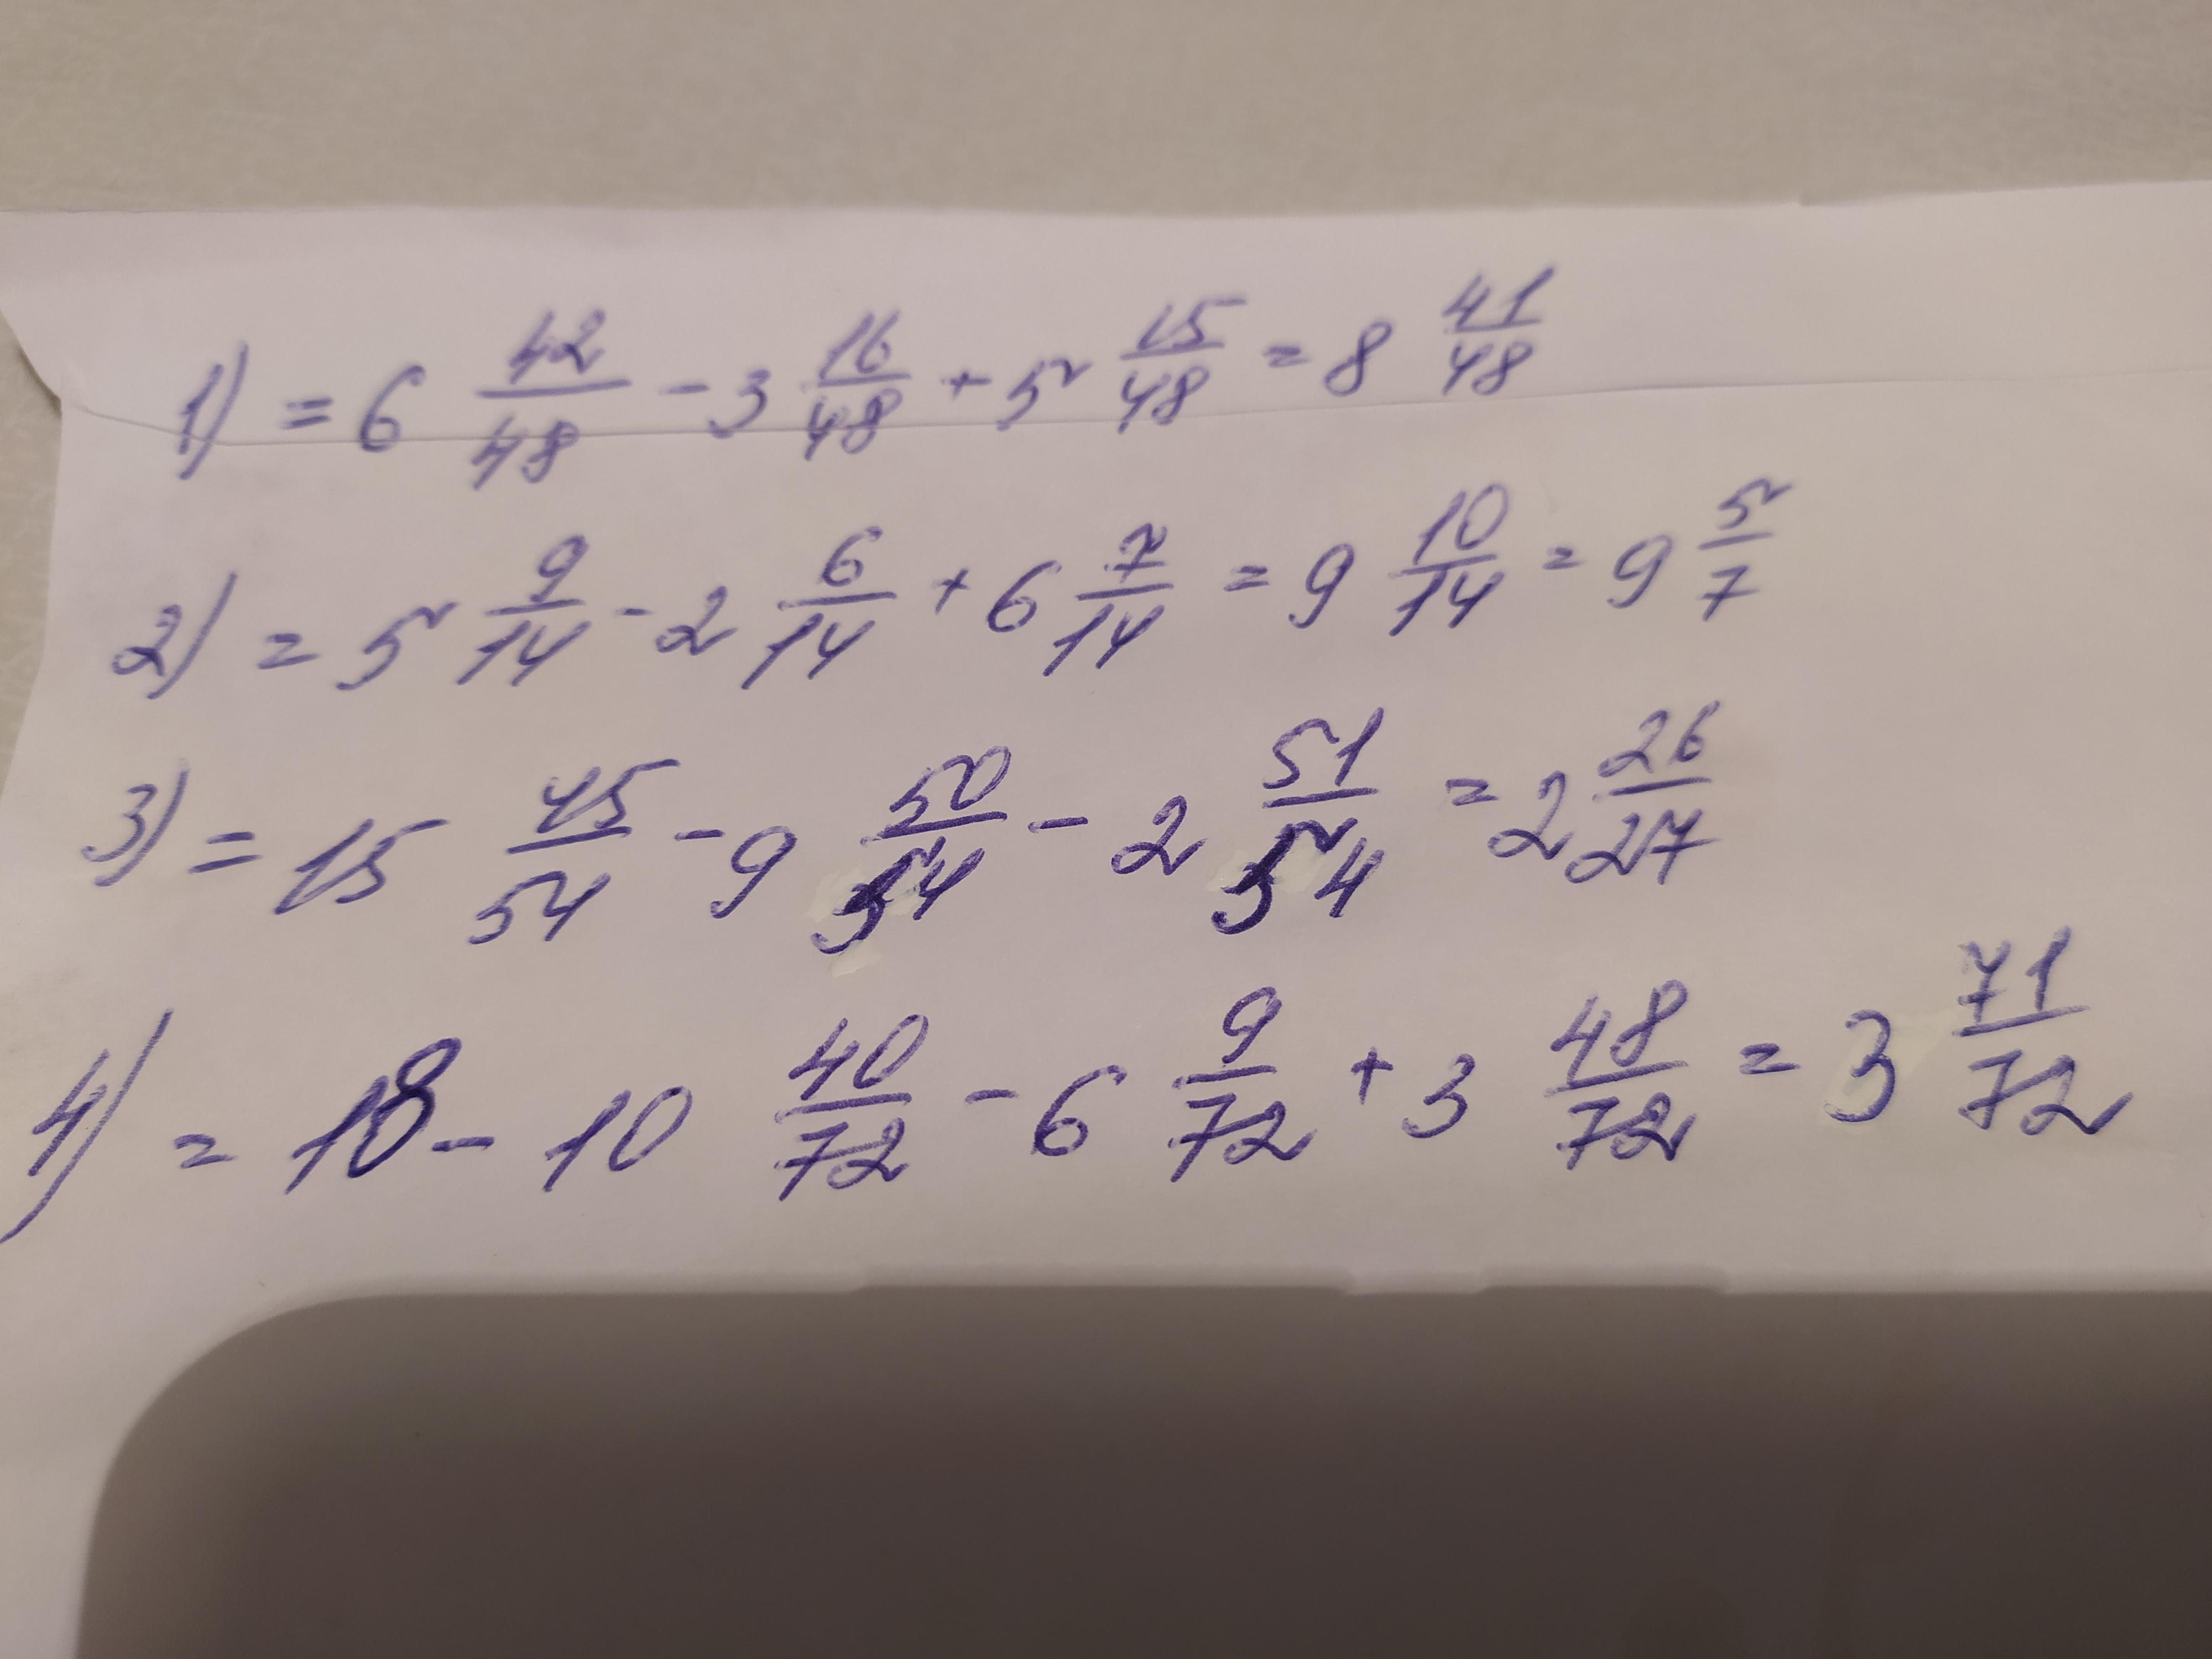 1) = 6 42/48 - 3 16/48 + 5 15/48 = 8 41/48
2) = 5 9/14 - 2 6/14 + 6 7/14 = 9 10/14 = 9 5/7
3) = 15 45/54 - 9 50/54 - 2 51/54 = 2 26/27
4) = 18 - 10 40/72 - 6 9/72 + 3 48/72 = 3 71/72